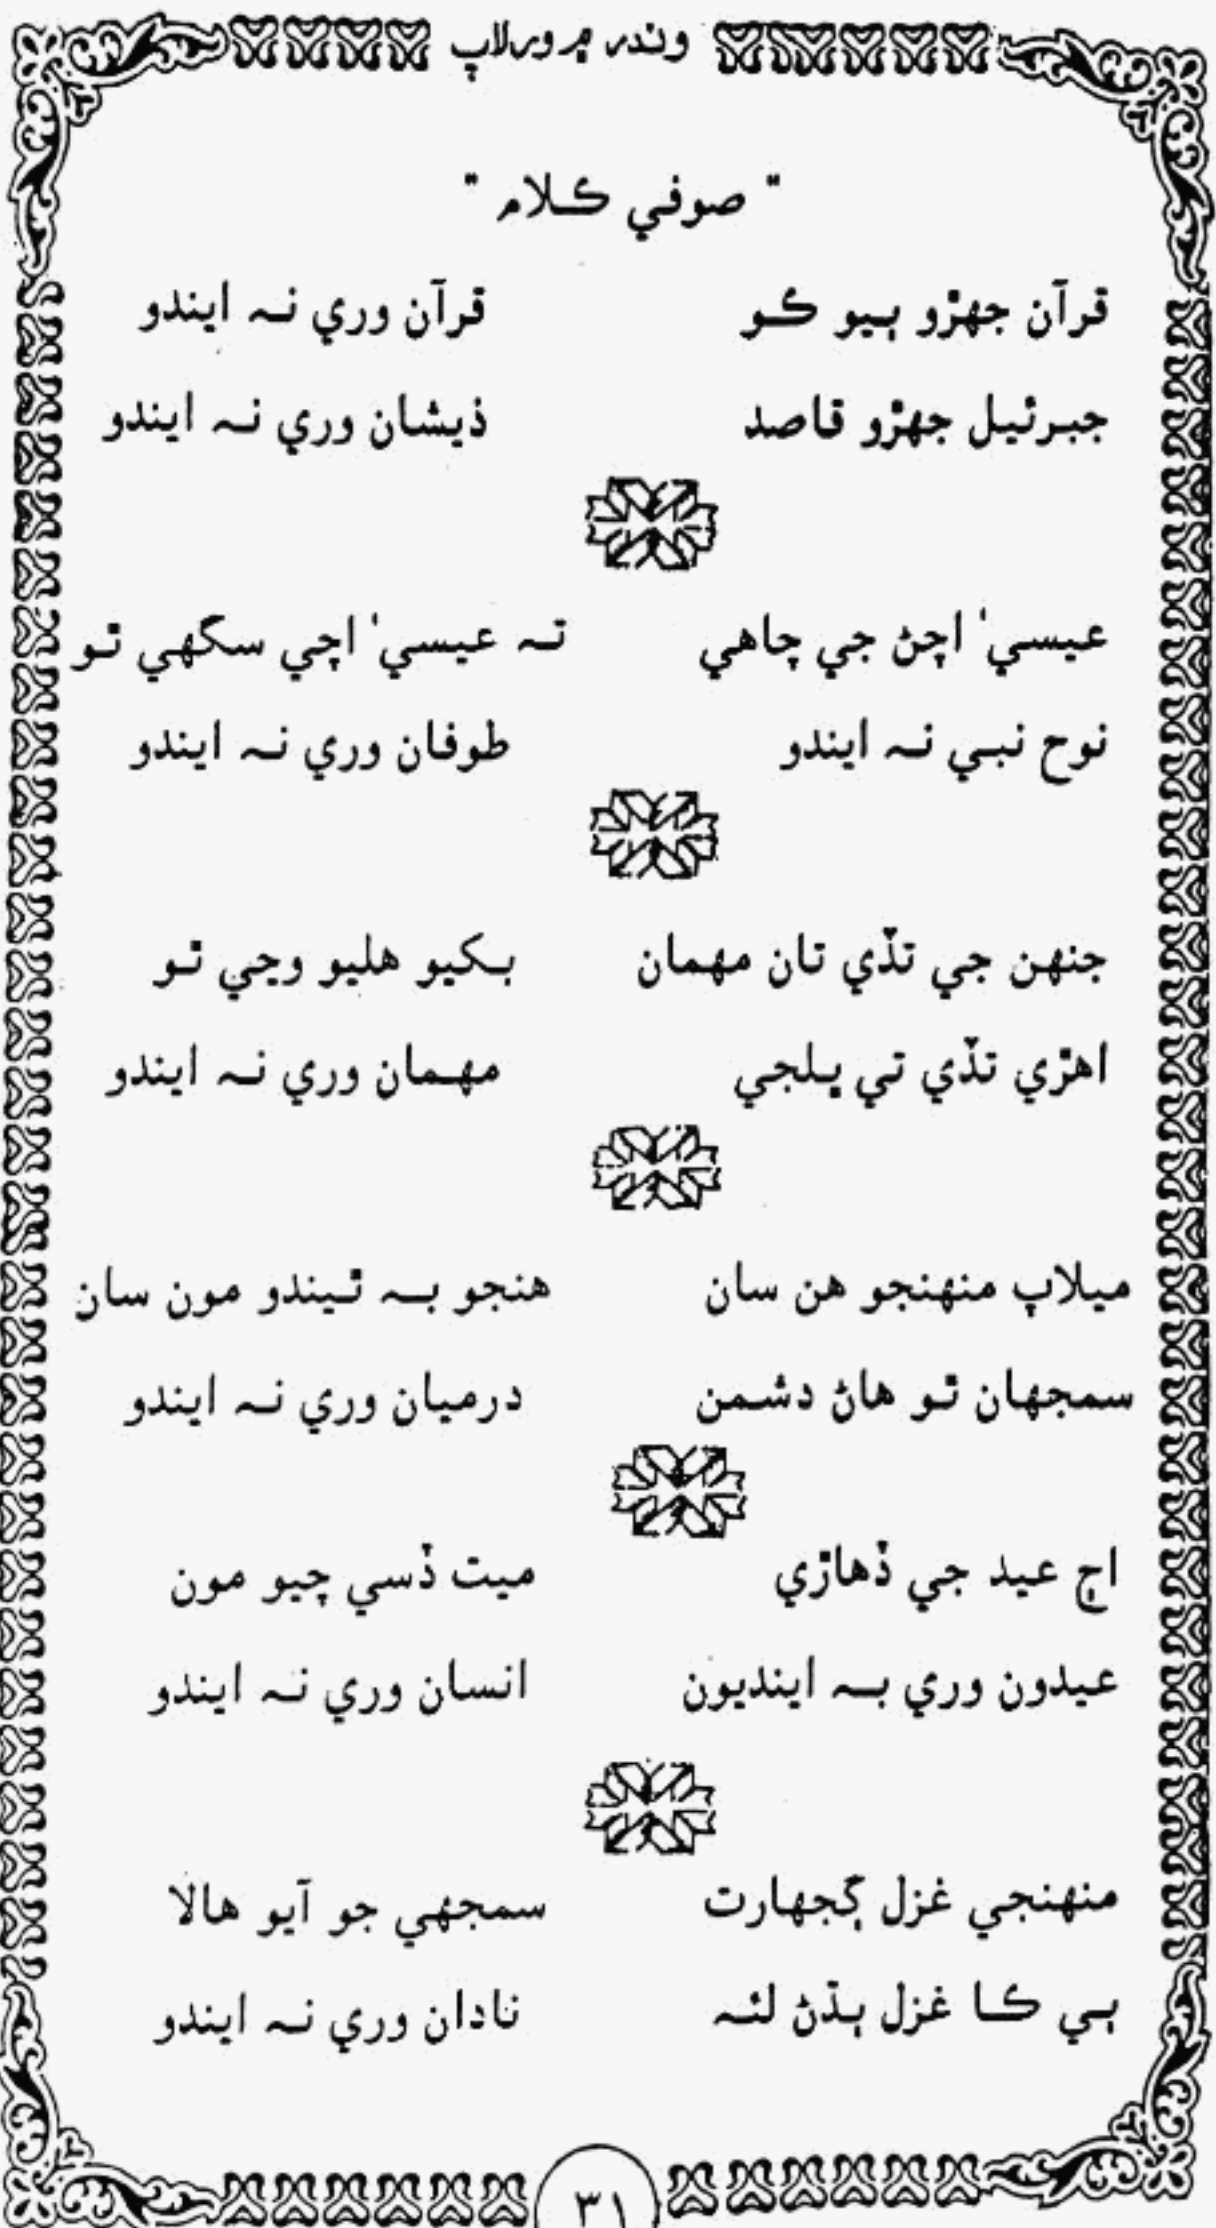 وندر ۾ ورلاپ
" صوفي ڪلام "
قرآن جهڙو ٻيو ڪو قرآن وري نہ ايندو
جبرئيل جهڙو قاصد ذيشان وري نہ ايندو
عيسيٰ اچڻ جي چاهي تہ عيسيٰ اچي سگهي ٿو
نوح نبي نہ ايندو طوفان وري نہ ايندو
جنهن جي تڏي تان مهمان بکيو هليو وڃي ٿو
اهڙي تڏي تي ڀلجي مهمان وري نہ ايندو
ميلاپ منهنجو هن سان هنجو بہ ٿيندو مون سان
سمجهان ٿو هاڻ دشمن درميان وري نہ ايندو
اڄ عيد جي ڏهاڙي ميت ڏسي چيو مون
عيدون وري بہ اينديون انسان وري نہ ايندو
منهنجي غزل ڳجهارت سمجهي جو آيو هالا
ٻي ڪا غزل ٻڌڻ لئہ نادان وري نہ ايندو
٣١